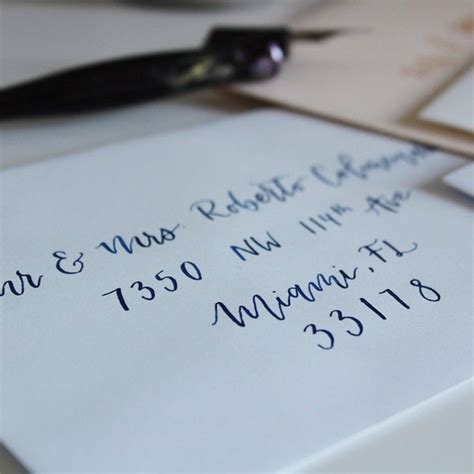 mr & mrs. Roberto
7350 NW 114th Ave
Miami, FL
33178